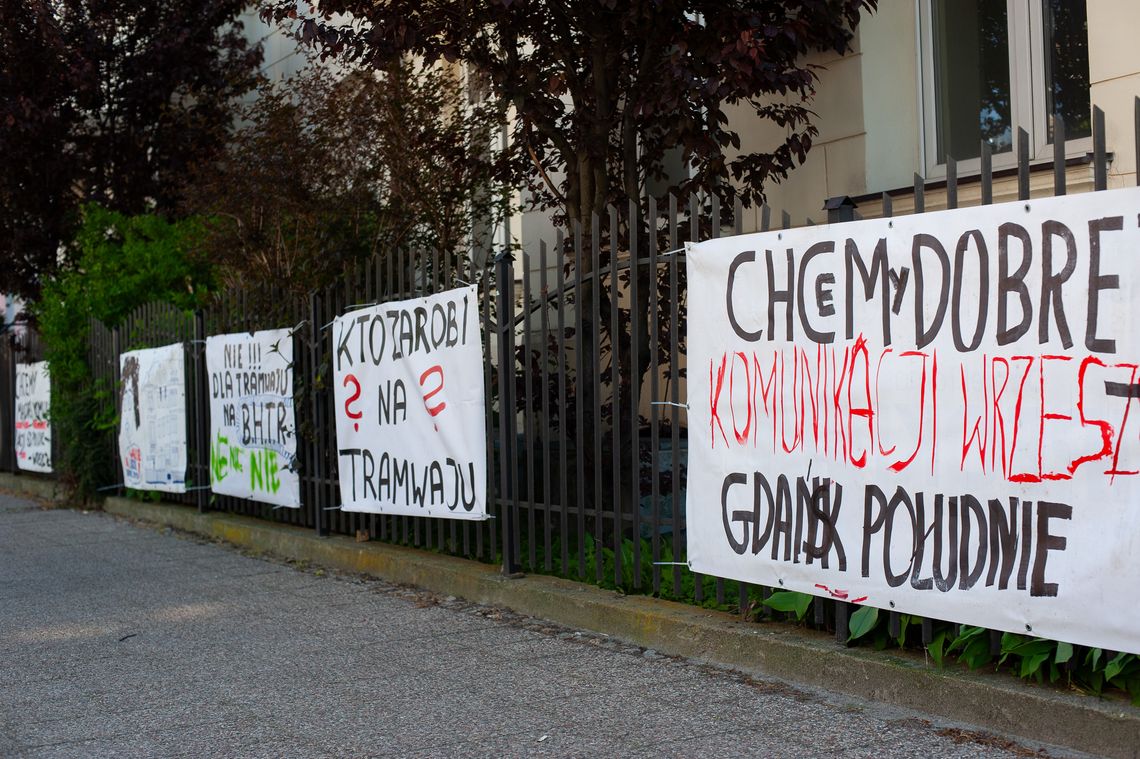 CHCEMY DOBRE
KOMUNIKACJI WRZESZ
GDAŃSK POŁUDNIE
KTO ZAROBI
? NA ?
TRAMWAJU
NIE !!!
DLA TRAMWAJU
NA BHTR
NIE NIE NIE